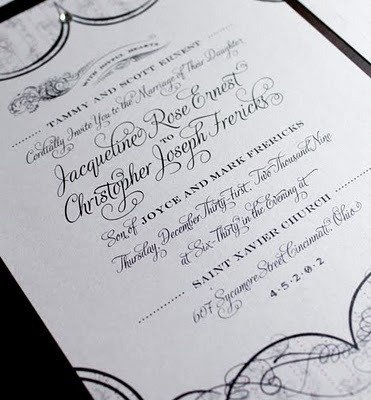 WITH JOYFUL HEARTS
TAMMY AND SCOTT ERNEST
Cordially Invite You to the Marriage of Their Daughter
Jacqueline Rose Ernest
TO
Christopher Joseph Frericks
Son of JOYCE AND MARK FRERICKS
Thursday, December Thirty First, Two Thousand Nine
at Six-Thirty in the Evening at
SAINT XAVIER CHURCH
607 Sycamore Street Cincinnati, Ohio
4·5·2·0·2